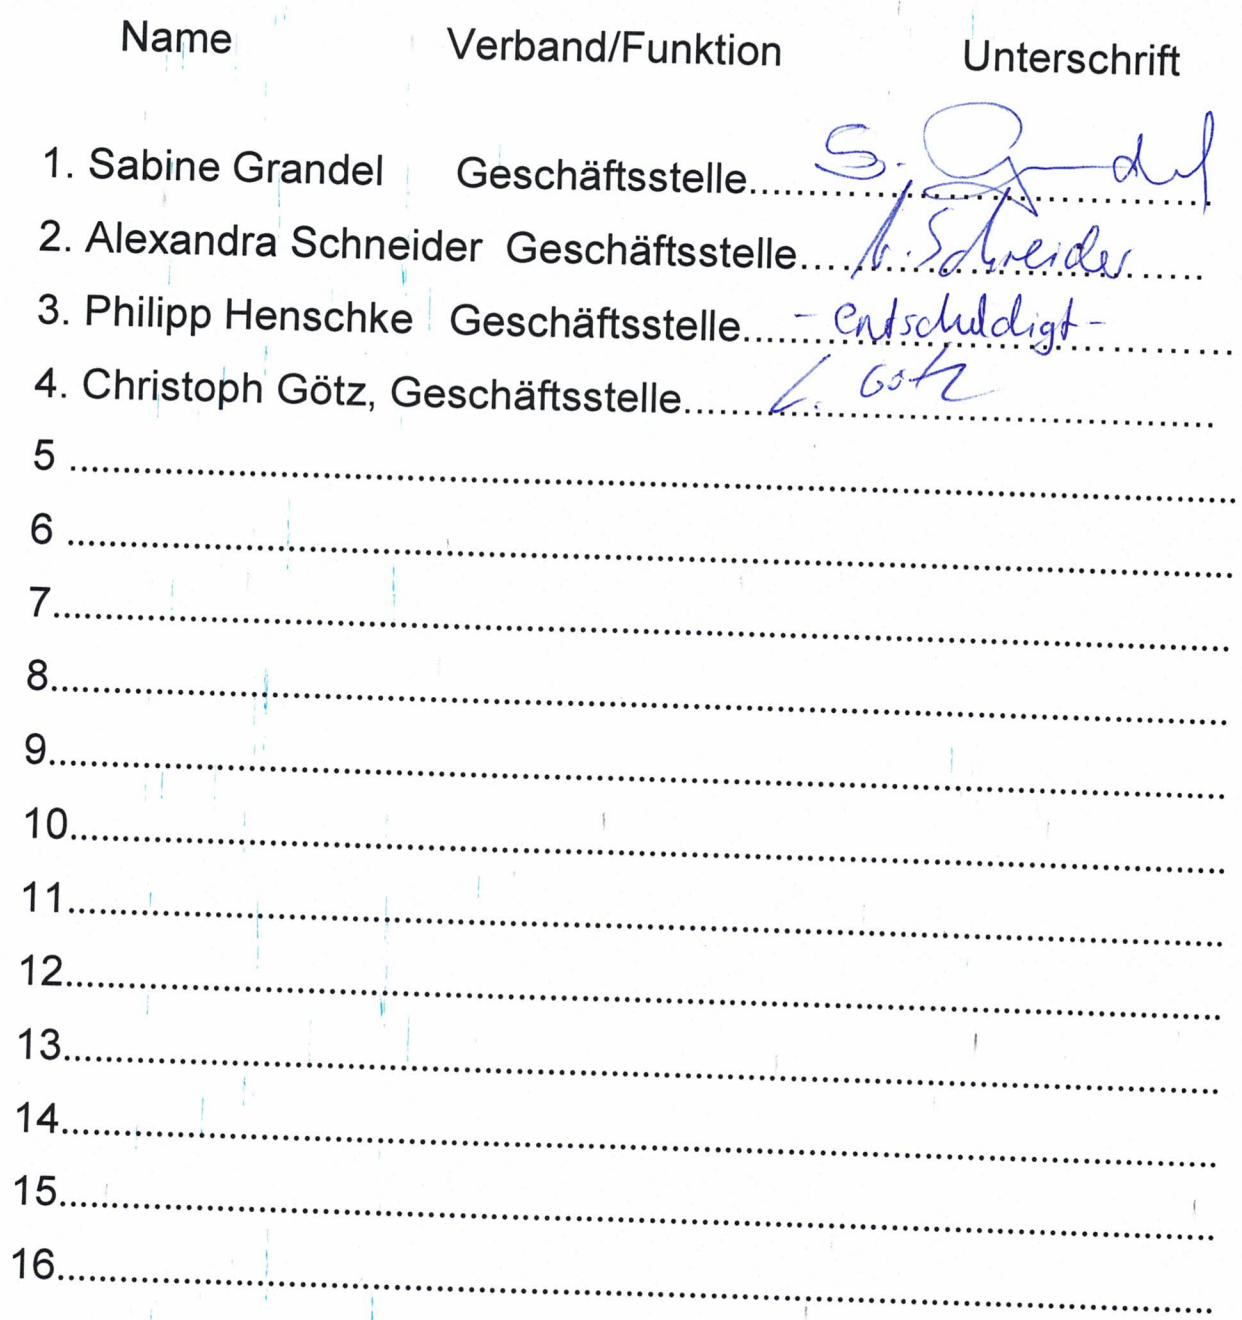 Name Verband/Funktion Unterschrift
1. Sabine Grandel Geschäftsstelle.......... S. Grandel
2. Alexandra Schneider Geschäftsstelle.......... A. Schneider
3. Philipp Henschke Geschäftsstelle.......... - entschuldigt -
4. Christoph Götz, Geschäftsstelle.......... C. Götz
5 ..........
6 ..........
7..........
8..........
9..........
10..........
11..........
12..........
13..........
14..........
15..........
16..........